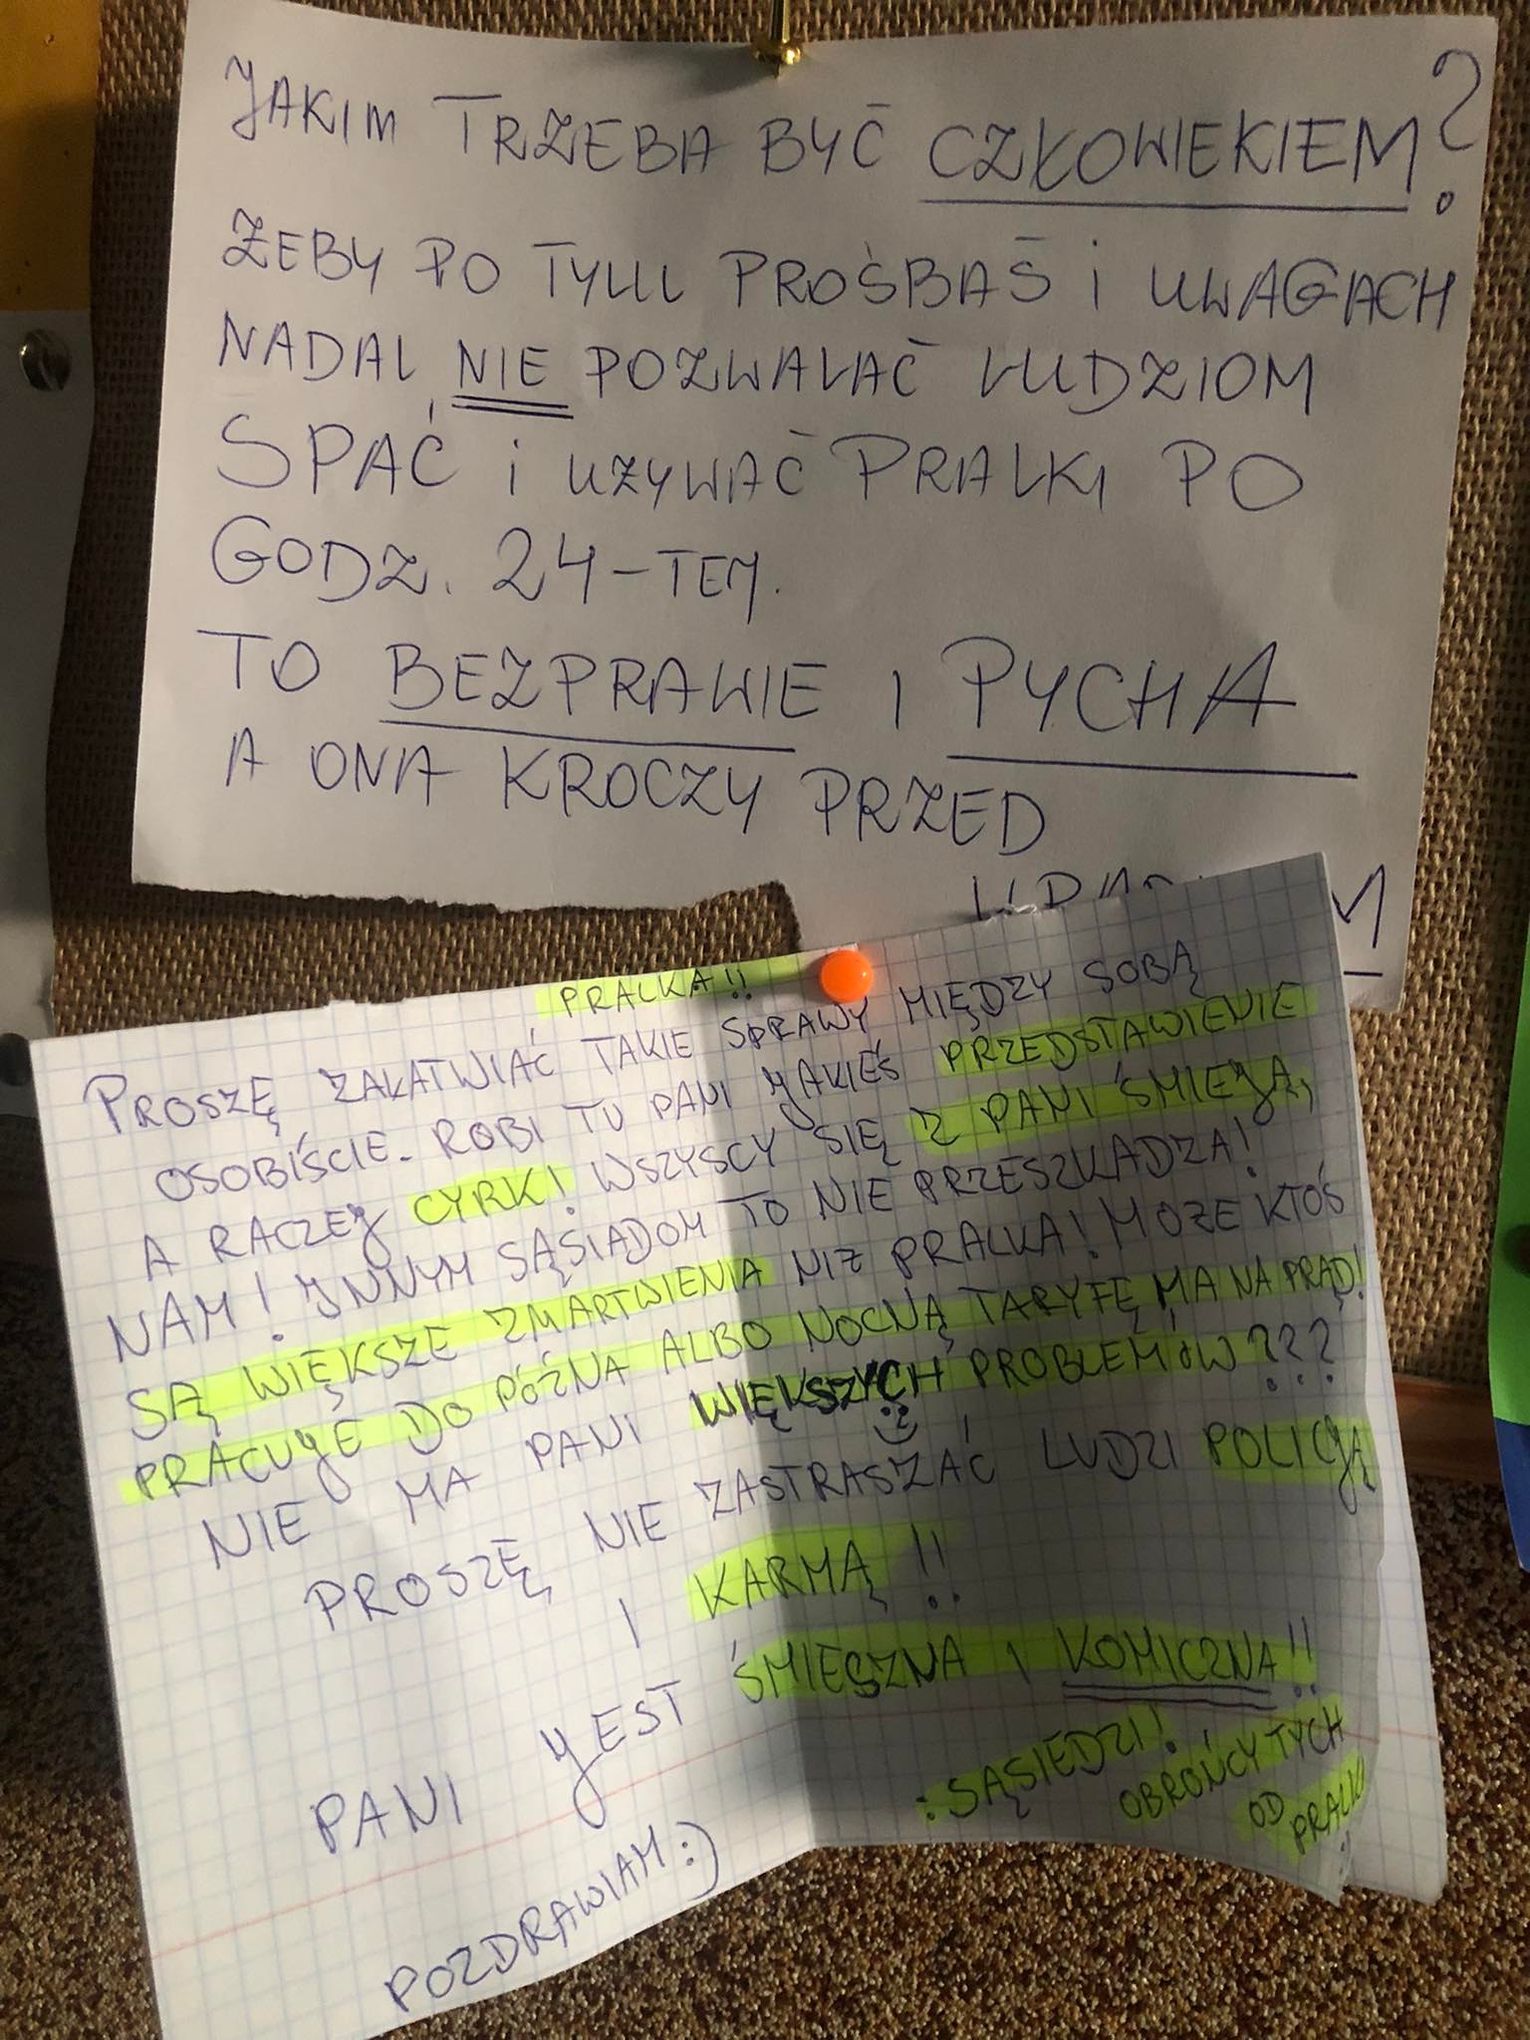 JAKIM TRZEBA BYĆ CZŁOWIEKIEM?
ŻEBY PO TYLU PROŚBAŚ i UWAGACH
NADAL NIE POZWALAĆ LUDZIOM
SPAĆ i UŻYWAĆ PRALKI PO
GODZ. 24-TEJ.
TO BEZPRAWIE I PYCHA
A ONA KROCZY PRZED
PRALKA!!
PROSZĘ ZAŁATWIAĆ TAKIE SPRAWY MIĘDZY SOBĄ
OSOBIŚCIE. ROBI TU PANI JAKIEŚ PRZEDSTAWIENIE
A RACZEJ CYRK! WSZYSCY SIĘ Z PANI ŚMIEJĄ,
NAM! INNYM SĄSIADOM TO NIE PRZESZKADZA!
SĄ WIĘKSZE ZMARTWIENIA NIŻ PRALKA! MOŻE KTOŚ
PRACUJE DO PÓŹNA ALBO NOCNĄ TARYFĘ MA NA PRĄD!
NIE MA PANI WIĘKSZYCH PROBLEMÓW???
PROSZĘ NIE ZASTRASZAĆ LUDZI POLICJĄ
I KARMĄ!!
PANI JEST ŚMIESZNA I KOMICZNA!!
: SĄSIEDZI!
OBROŃCY TYCH
OD
PRALKI
POZDRAWIAM :)